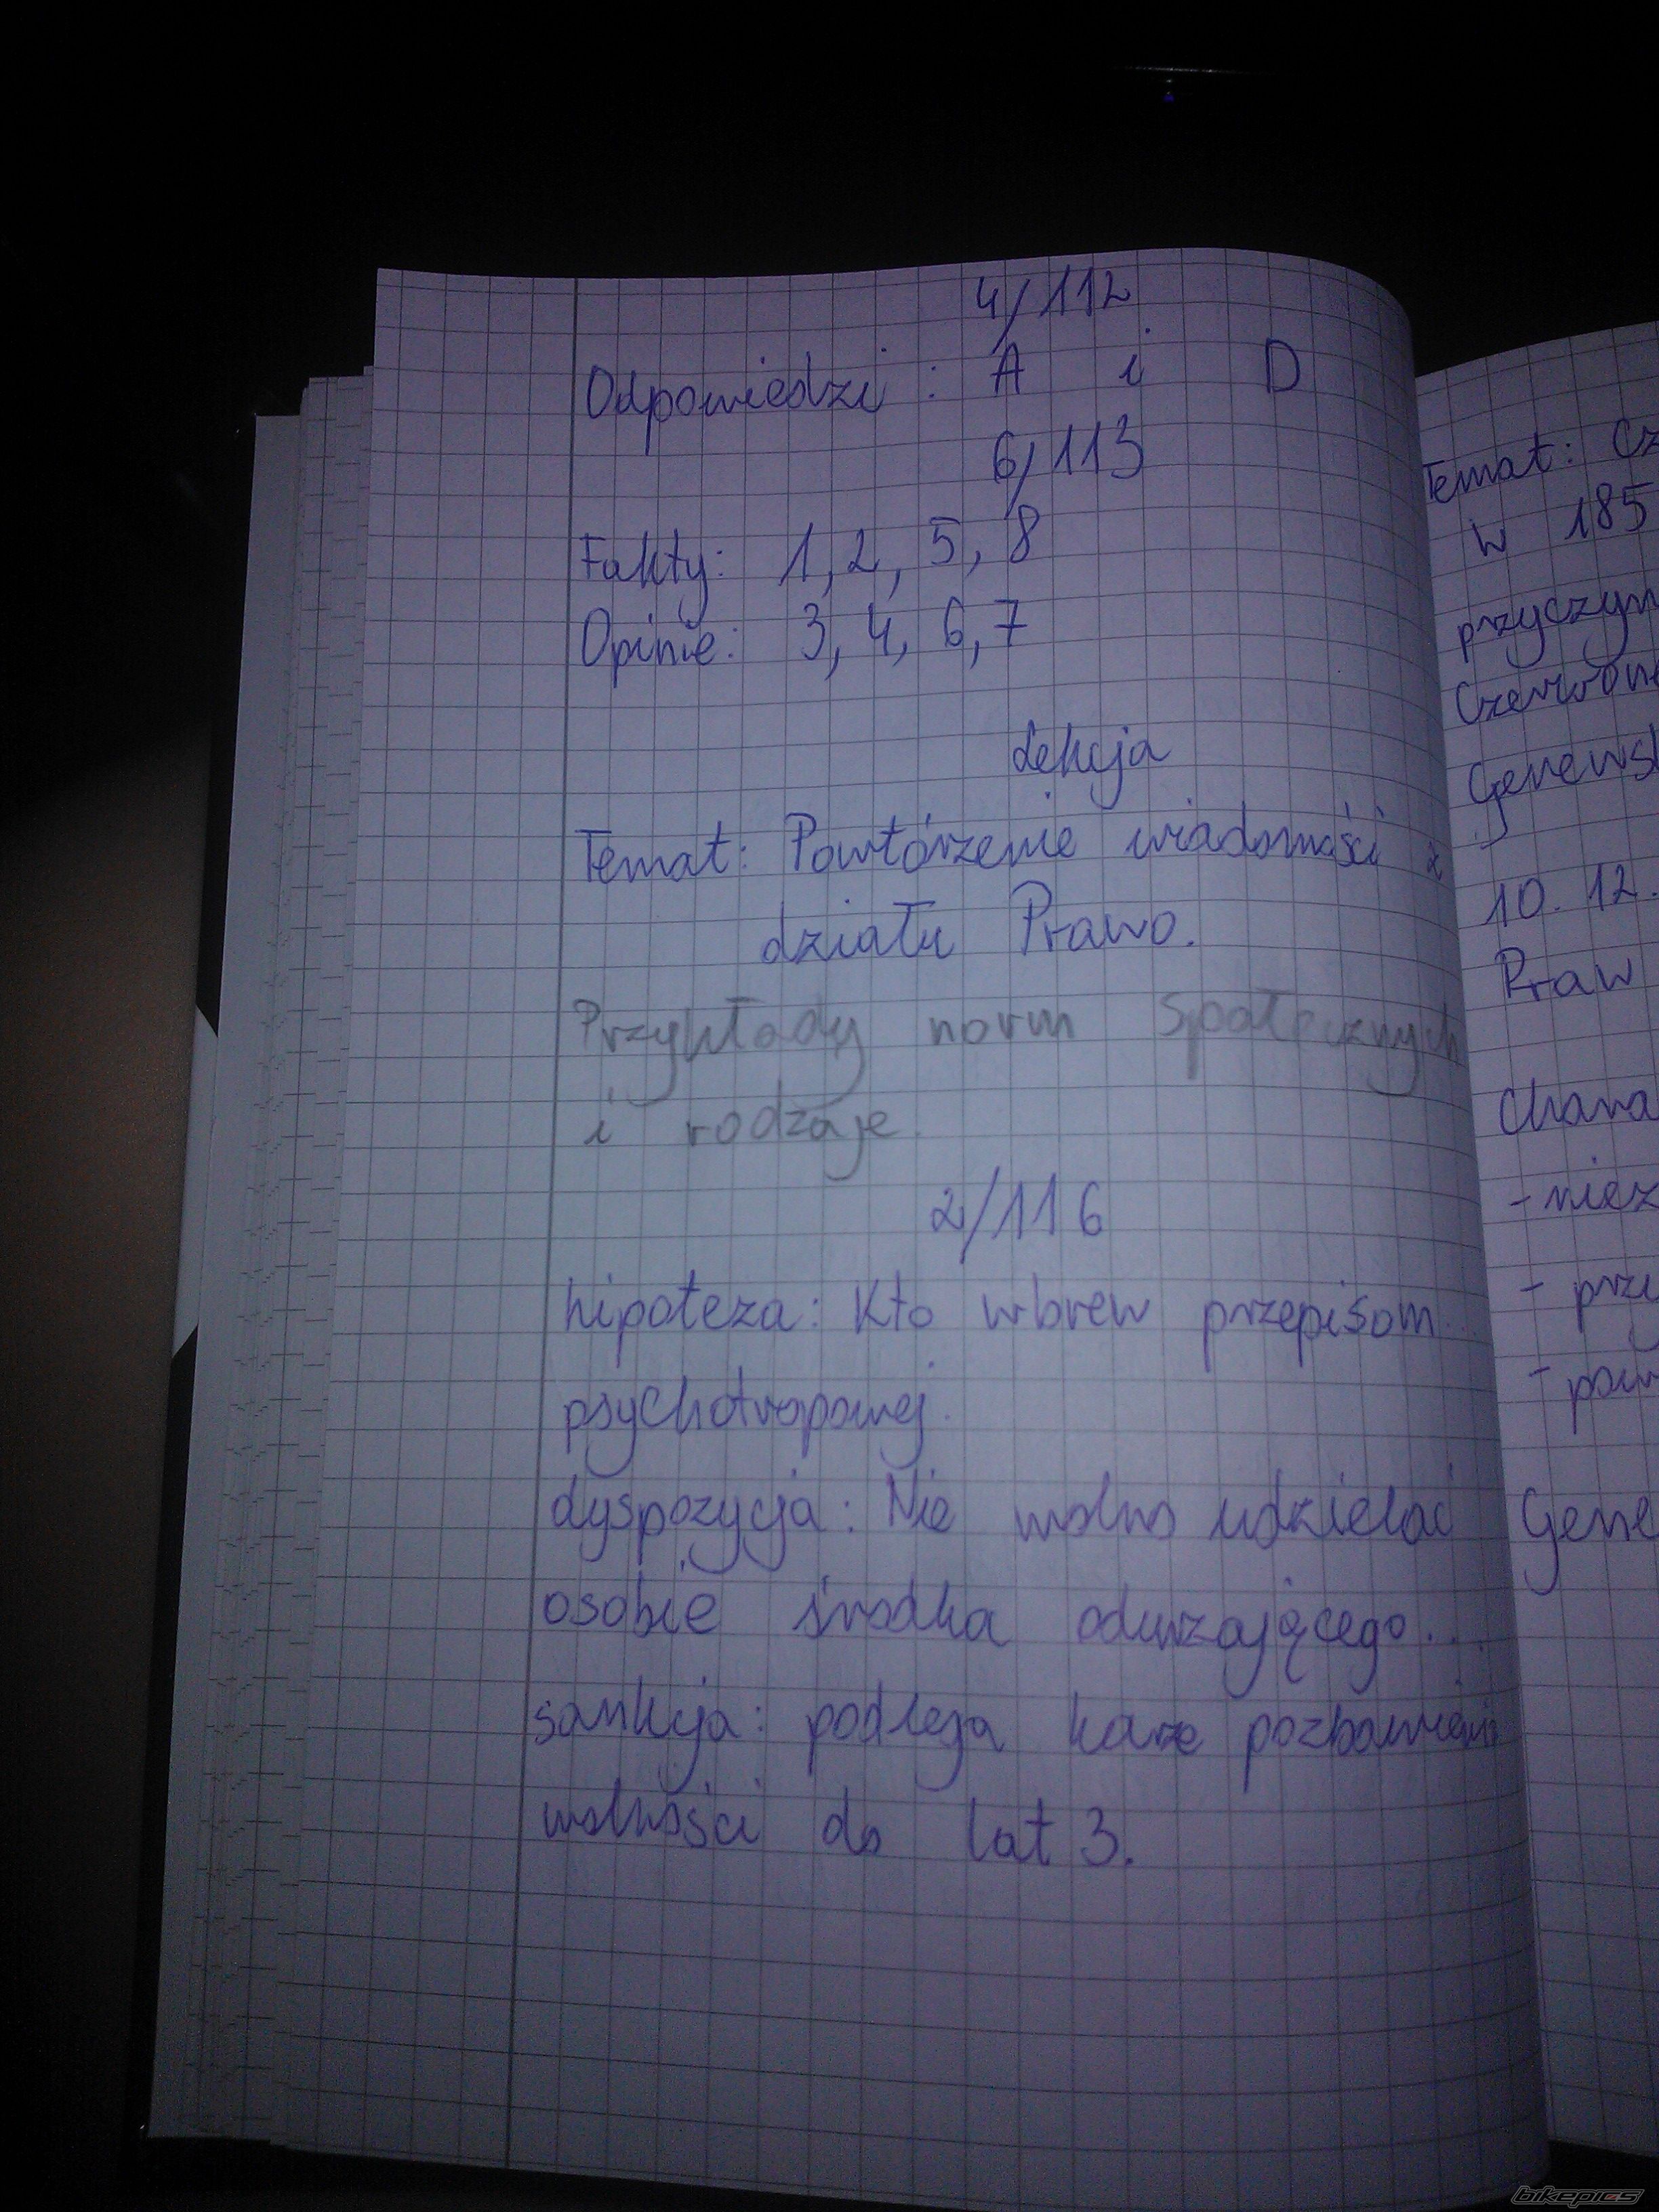 4/112
Odpowiedzi: A i D
6/113
Fakty: 1, 2, 5, 8
Opinie: 3, 4, 6, 7
Lekcja
Temat: Powtórzenie wiadomości z
działu Prawo.
Przykłady norm społecznych
i rodzaje.
2/116
hipoteza: Kto wbrew przepisom...
psychotropowej.
dyspozycja: Nie wolno udzielać
osobie środka odurzającego...
sankcja: podlega karze pozbawieni
wolności do lat 3.
Temat: Cz
w 185
przyczyn
Czerwone
Genewsk
10.12.
Praw
Chara
- niez
- przy
- pow
Gene
bikepics